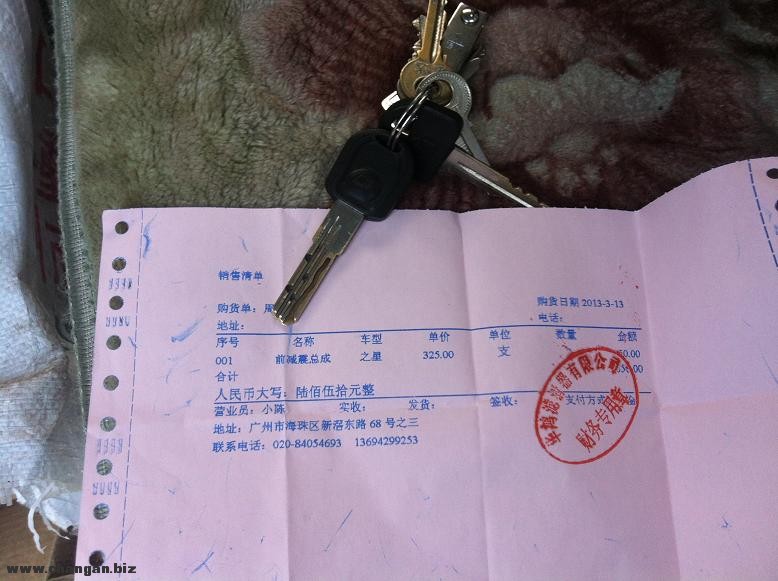 销售清单
购货单：周
购货日期 2013-3-13
地址：
电话：
序号 名称 车型 单价 单位 数量 金额
001 前减震总成 之星 325.00 支 50.00
合计
人民币大写：陆佰伍拾元整
营业员：小陈 实收： 发货： 签收： 支付方式
地址：广州市海珠区新滘东路 68 号之三
联系电话：020-84054693 13694299253
滤清器有限公司
财务专用章
www.changan.biz